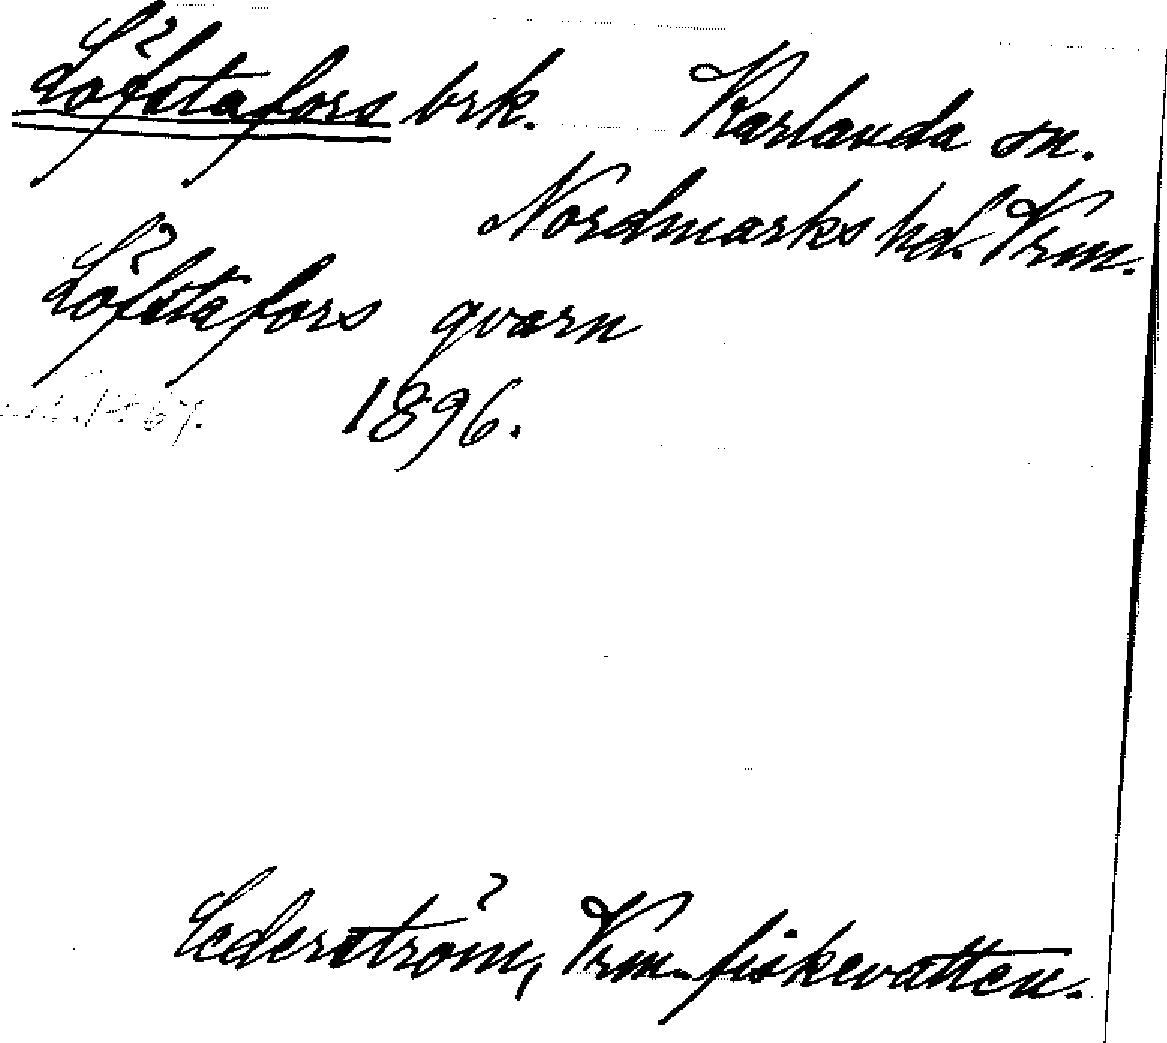 Löfstafors brk. Karlanda sn.
Nordmarks hd. Vrm.
Löfstafors qvarn
1896.
Cederström, Vrm. fiskevatten.